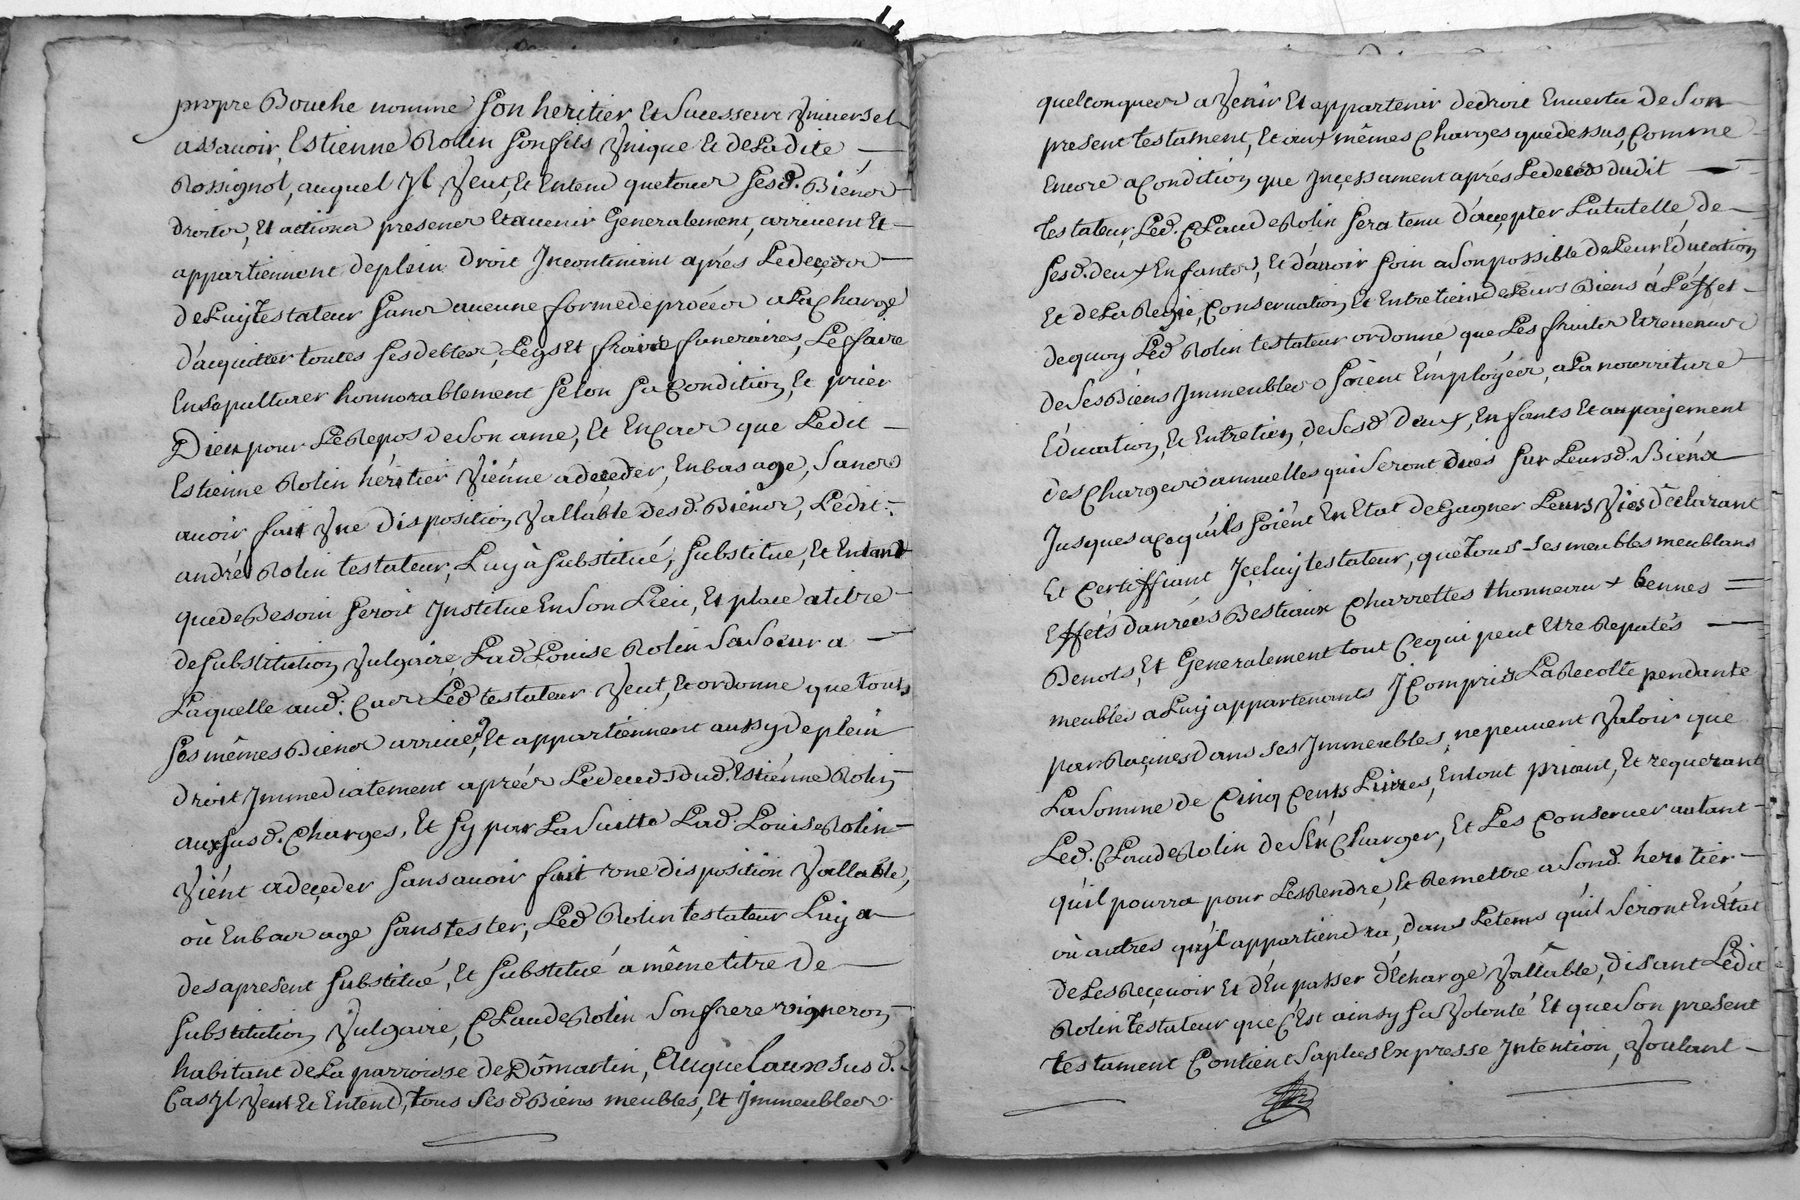 propre Bouche nomme son heritier Et Sucesseur Vniversel
assauoir, Estienne Rolin son fils Vnique Et de Ladite
Rossignol, auquel Jl Veut, Et Entend que tous ses d. Biens
droits, Et actions presens Et auenir Generalement, arriuent Et
appartiennent de plein Droit Jncontinant aprés Le decés
de Luy testateur sans aucune forme de procés a La Charge
d'acquitter toutes ses debtes, Legs Et frais funeraires, Le faire
Ensepulturer honnorablement selon sa Condition, Et prier
Dieu pour Le Repos de son ame, Et En Cas que Ledit
Estienne Rolin héritier Viénne a deceder, En bas age, sans
auoir fait Vne disposition Vallable des d. Biens, Ledit
andré Rolin testateur, Luy à substitué, substitue, Et Entant
que de Besoin seroit Jnstitue En son Lieu, Et place a titre
de substitution Vulgaire Lad. Louise Rolin sa soeur a
Laquelle aud. Cas Led. testateur Veut, Et ordonne que tous
ses mêmes Biens arriuent, Et appartiénnent aussy de plein
droit Jmmediatement aprés Le deceds dud. Estiénne Rolin
aux sus d. Charges, Et sy par La suitte Lad. Louise Rolin
Viént a deçeder sans auoir fait vne disposition Vallable,
où En bas age sans tester, Led. Rolin testateur Luy a
des apresent substitué, Et substitué a même titre de
substitution Vulgaire, Claude Rolin son frere vigneron
habitant de La parroisse de Dômartin, Auquel aux sus d.
Cas Jl Veut Et Entend, tous ses d. Biens meubles, Et Jmmeubles
quelconques a Venir Et appartenir de droit En vertu de son
present testament, Et aux mêmes Charges que dessus, Comme
Encore a Condition que Jnçessament aprés Le decés dudit
testateur, Led. Claude Rolin sera tenu d'açcepter La tutelle de
ses d. deux Enfants, Et d'auoir soin a son possible de Leur Education
Et de La Regie, Conseruation, Et Entretien de Leurs Biens à L'éffet
de quoy Led. Rolin testateur ordonne que Les fruits Et reuenus
de ses Biéns Jmmeubles soiént Employés, a La nourriture
Education, Et Entretien de ses d. deux Enfants Et au payement
des Charges annuelles qui seront duës sur Leurs d. Biéns
Jusques a Ce qu'ils soiént En Etat de Gagner Leurs Vies déclairant
Et Certiffiant Jçeluy testateur, que tous ses meubles meublans
Effets danreés Bestiaux Charrettes thonneaux + bennes =
Benots, Et Generalement tout Ce qui peut Etre Reputés
meubles a Luy appartenants J Compris La Recolte pendante
par Racines dans ses Jmmeubles, ne peuuent Valoir que
La somme de Cinq Cents Liures, En tout priant, Et requerant
Led. Claude Rolin de s'én Charger, Et Les Conseruer autant
qu'il pourra pour Les Rendre, Et Remettre a son d. heritier
où autres qu'jl appartiendra, dans Le tems qu'il seront En état
de Les Reçeuoir Et d'én passer d'écharge Vallable, disant Ledit
Rolin testateur que C'ést ainsy sa Volonté Et que son present
testament Contient sa plus Expresse Intention, Voulant